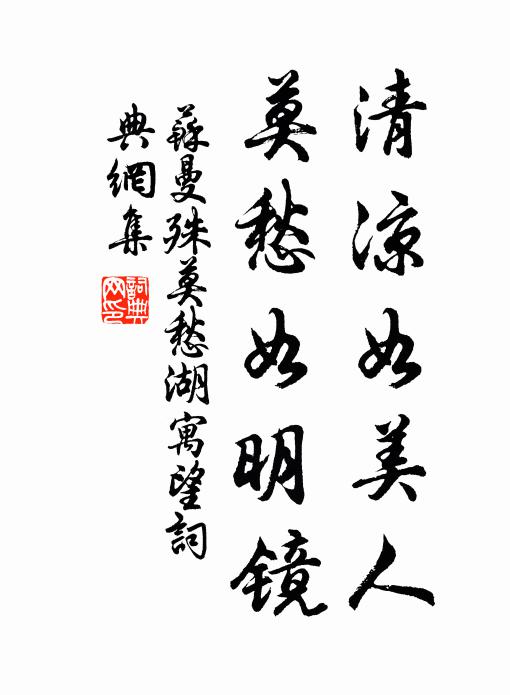 清涼如美人
莫愁如明鏡
蘇曼殊莫愁湖寓望詞
典網集
詞典
网印